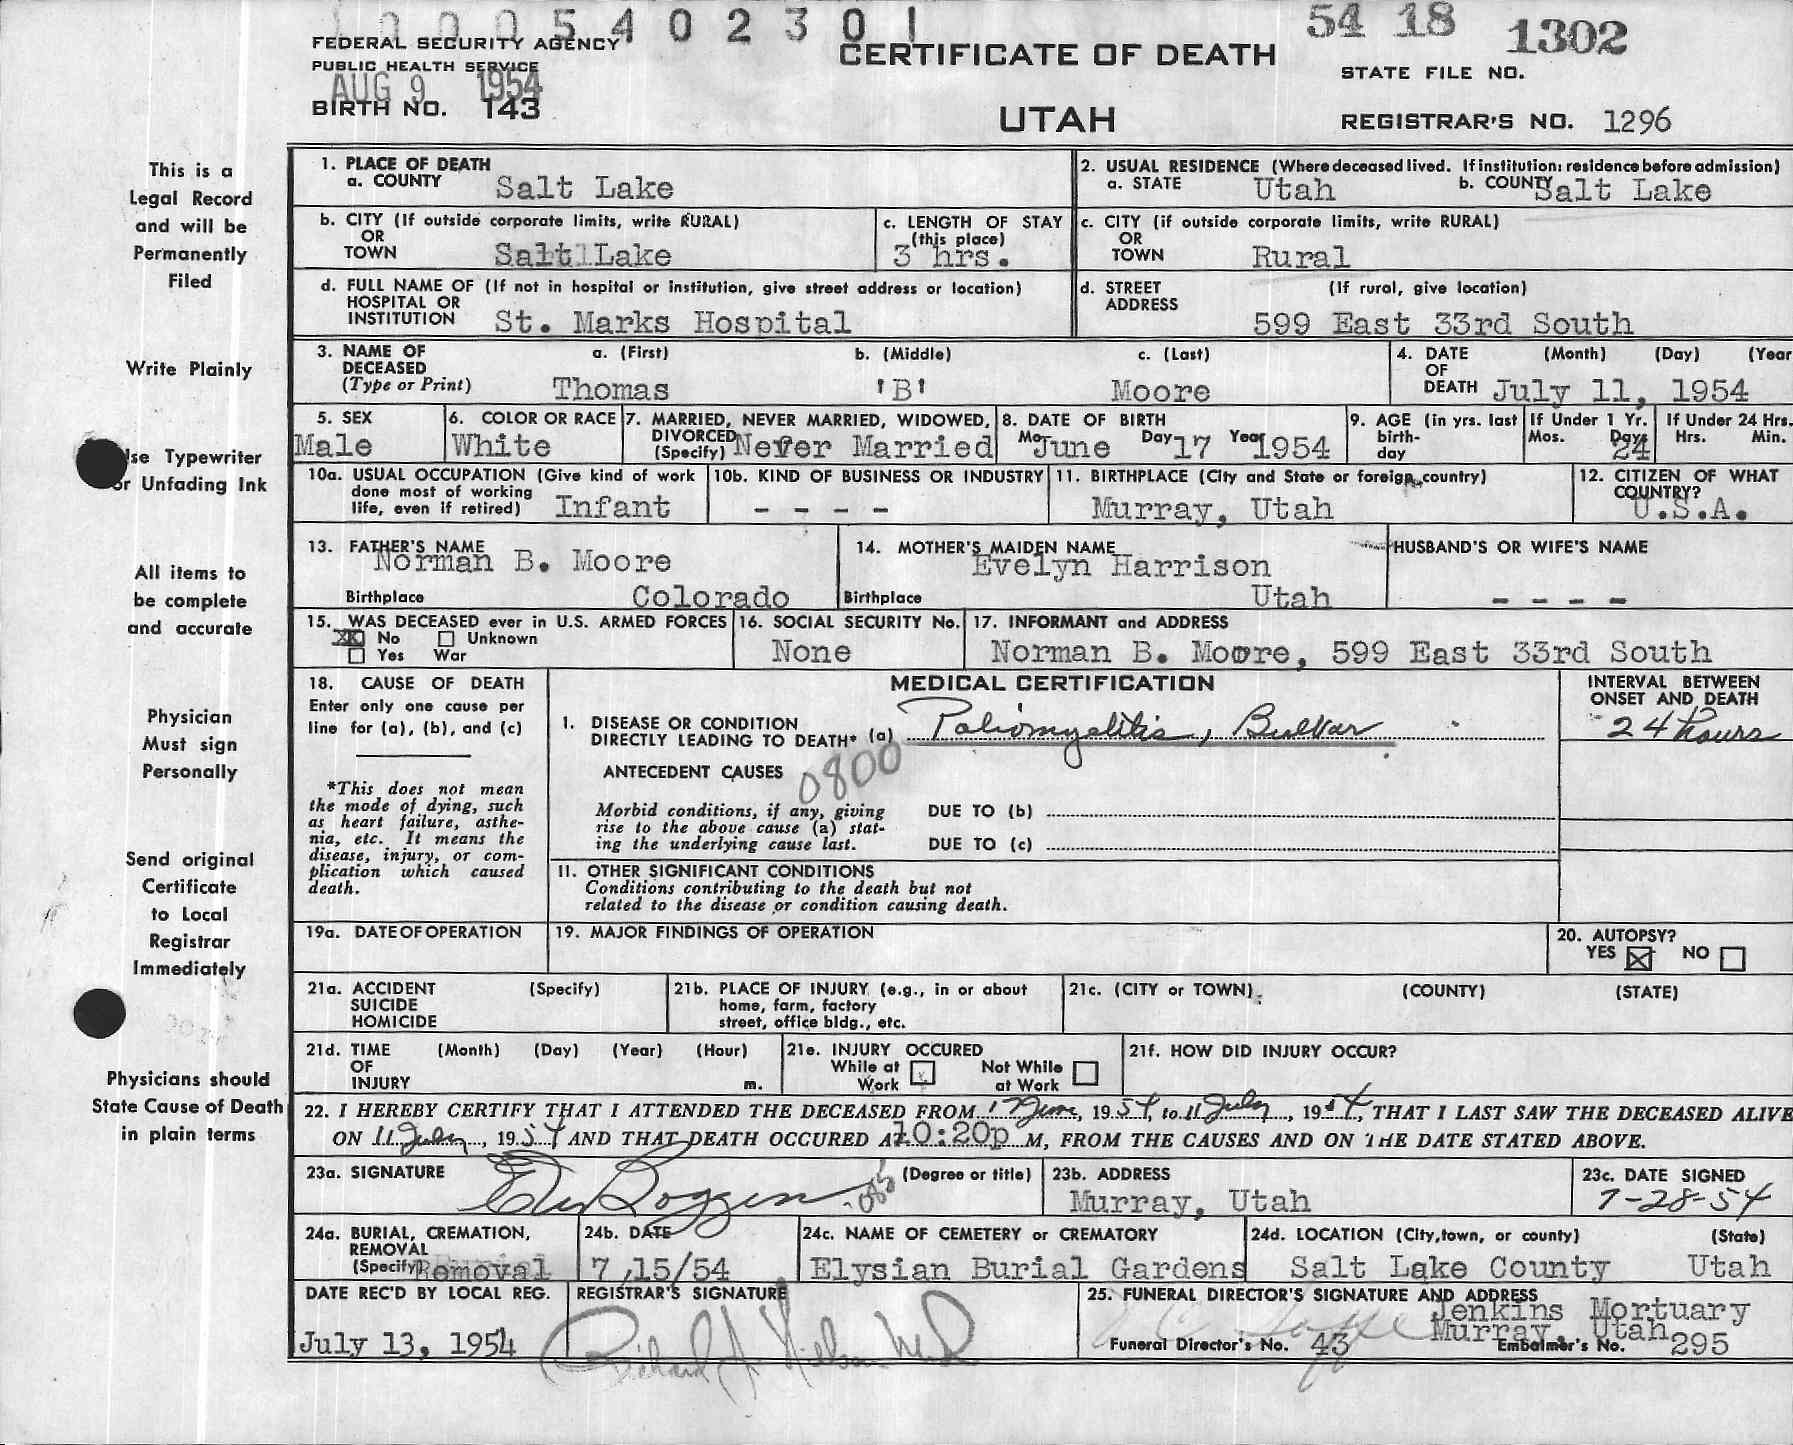 10005402301
54 18 1302
FEDERAL SECURITY AGENCY
PUBLIC HEALTH SERVICE
AUG 9 1954
BIRTH NO. 143
CERTIFICATE OF DEATH
UTAH
STATE FILE NO.
REGISTRAR'S NO. 1296
This is a
Legal Record
and will be
Permanently
Filed
Write Plainly
Use Typewriter
or Unfading Ink
All items to
be complete
and accurate
Physician
Must sign
Personally
Send original
Certificate
to Local
Registrar
Immediately
Physicians should
State Cause of Death
in plain terms
1. PLACE OF DEATH
a. COUNTY Salt Lake
2. USUAL RESIDENCE (Where deceased lived. If institution: residence before admission)
a. STATE Utah b. COUNTY Salt Lake
b. CITY (If outside corporate limits, write RURAL)
OR
TOWN Salt Lake
c. LENGTH OF STAY
(this place)
3 hrs.
c. CITY (if outside corporate limits, write RURAL)
OR
TOWN Rural
d. FULL NAME OF (If not in hospital or institution, give street address or location)
HOSPITAL OR
INSTITUTION St. Marks Hospital
d. STREET (If rural, give location)
ADDRESS
599 East 33rd South
3. NAME OF a. (First) b. (Middle) c. (Last)
DECEASED
(Type or Print) Thomas 'B' Moore
4. DATE (Month) (Day) (Year
OF
DEATH July 11, 1954
5. SEX
Male
6. COLOR OR RACE
White
7. MARRIED, NEVER MARRIED, WIDOWED,
DIVORCED
(Specify) Never Married
8. DATE OF BIRTH
Mo. June Day 17 Year 1954
9. AGE (in yrs. last
birth-
day
If Under 1 Yr.
Mos. Days
24
If Under 24 Hrs.
Hrs. Min.
10a. USUAL OCCUPATION (Give kind of work
done most of working
life, even if retired) Infant
10b. KIND OF BUSINESS OR INDUSTRY
- - - -
11. BIRTHPLACE (City and State or foreign country)
Murray, Utah
12. CITIZEN OF WHAT
COUNTRY?
U.S.A.
13. FATHER'S NAME
Norman B. Moore
Birthplace Colorado
14. MOTHER'S MAIDEN NAME
Evelyn Harrison
Birthplace Utah
HUSBAND'S OR WIFE'S NAME
- - - -
15. WAS DECEASED ever in U.S. ARMED FORCES
XX No Unknown
Yes War
16. SOCIAL SECURITY No.
None
17. INFORMANT and ADDRESS
Norman B. Moore, 599 East 33rd South
18. CAUSE OF DEATH
Enter only one cause per
line for (a), (b), and (c)
*This does not mean
the mode of dying, such
as heart failure, asthe-
nia, etc. It means the
disease, injury, or com-
plication which caused
death.
MEDICAL CERTIFICATION
INTERVAL BETWEEN
ONSET AND DEATH
1. DISEASE OR CONDITION
DIRECTLY LEADING TO DEATH* (a) Poliomyelitis, Bulbar
24 hours
ANTECEDENT CAUSES
0800
Morbid conditions, if any, giving
rise to the above cause (a) stat-
ing the underlying cause last.
DUE TO (b)
DUE TO (c)
11. OTHER SIGNIFICANT CONDITIONS
Conditions contributing to the death but not
related to the disease or condition causing death.
19a. DATE OF OPERATION
19. MAJOR FINDINGS OF OPERATION
20. AUTOPSY?
YES X NO
21a. ACCIDENT (Specify)
SUICIDE
HOMICIDE
21b. PLACE OF INJURY (e.g., in or about
home, farm, factory
street, office bldg., etc.
21c. (CITY or TOWN) (COUNTY) (STATE)
21d. TIME (Month) (Day) (Year) (Hour)
OF
INJURY m.
21e. INJURY OCCURED
While at Not While
Work at Work
21f. HOW DID INJURY OCCUR?
22. I HEREBY CERTIFY THAT I ATTENDED THE DECEASED FROM 17 June, 1954, to 11 July, 1954, THAT I LAST SAW THE DECEASED ALIVE
ON 11 July, 1954 AND THAT DEATH OCCURED AT 10:20p M, FROM THE CAUSES AND ON THE DATE STATED ABOVE.
23a. SIGNATURE (Degree or title)
23b. ADDRESS
Murray, Utah
23c. DATE SIGNED
7-28-54
24a. BURIAL, CREMATION,
REMOVAL
(Specify) Removal
24b. DATE
7,15/54
24c. NAME OF CEMETERY or CREMATORY
Elysian Burial Gardens
24d. LOCATION (City, town, or county) (State)
Salt Lake County Utah
DATE REC'D BY LOCAL REG.
July 13, 1954
REGISTRAR'S SIGNATURE
25. FUNERAL DIRECTOR'S SIGNATURE AND ADDRESS
Jenkins Mortuary
Murray, Utah
Funeral Director's No. 43 Embalmer's No. 295